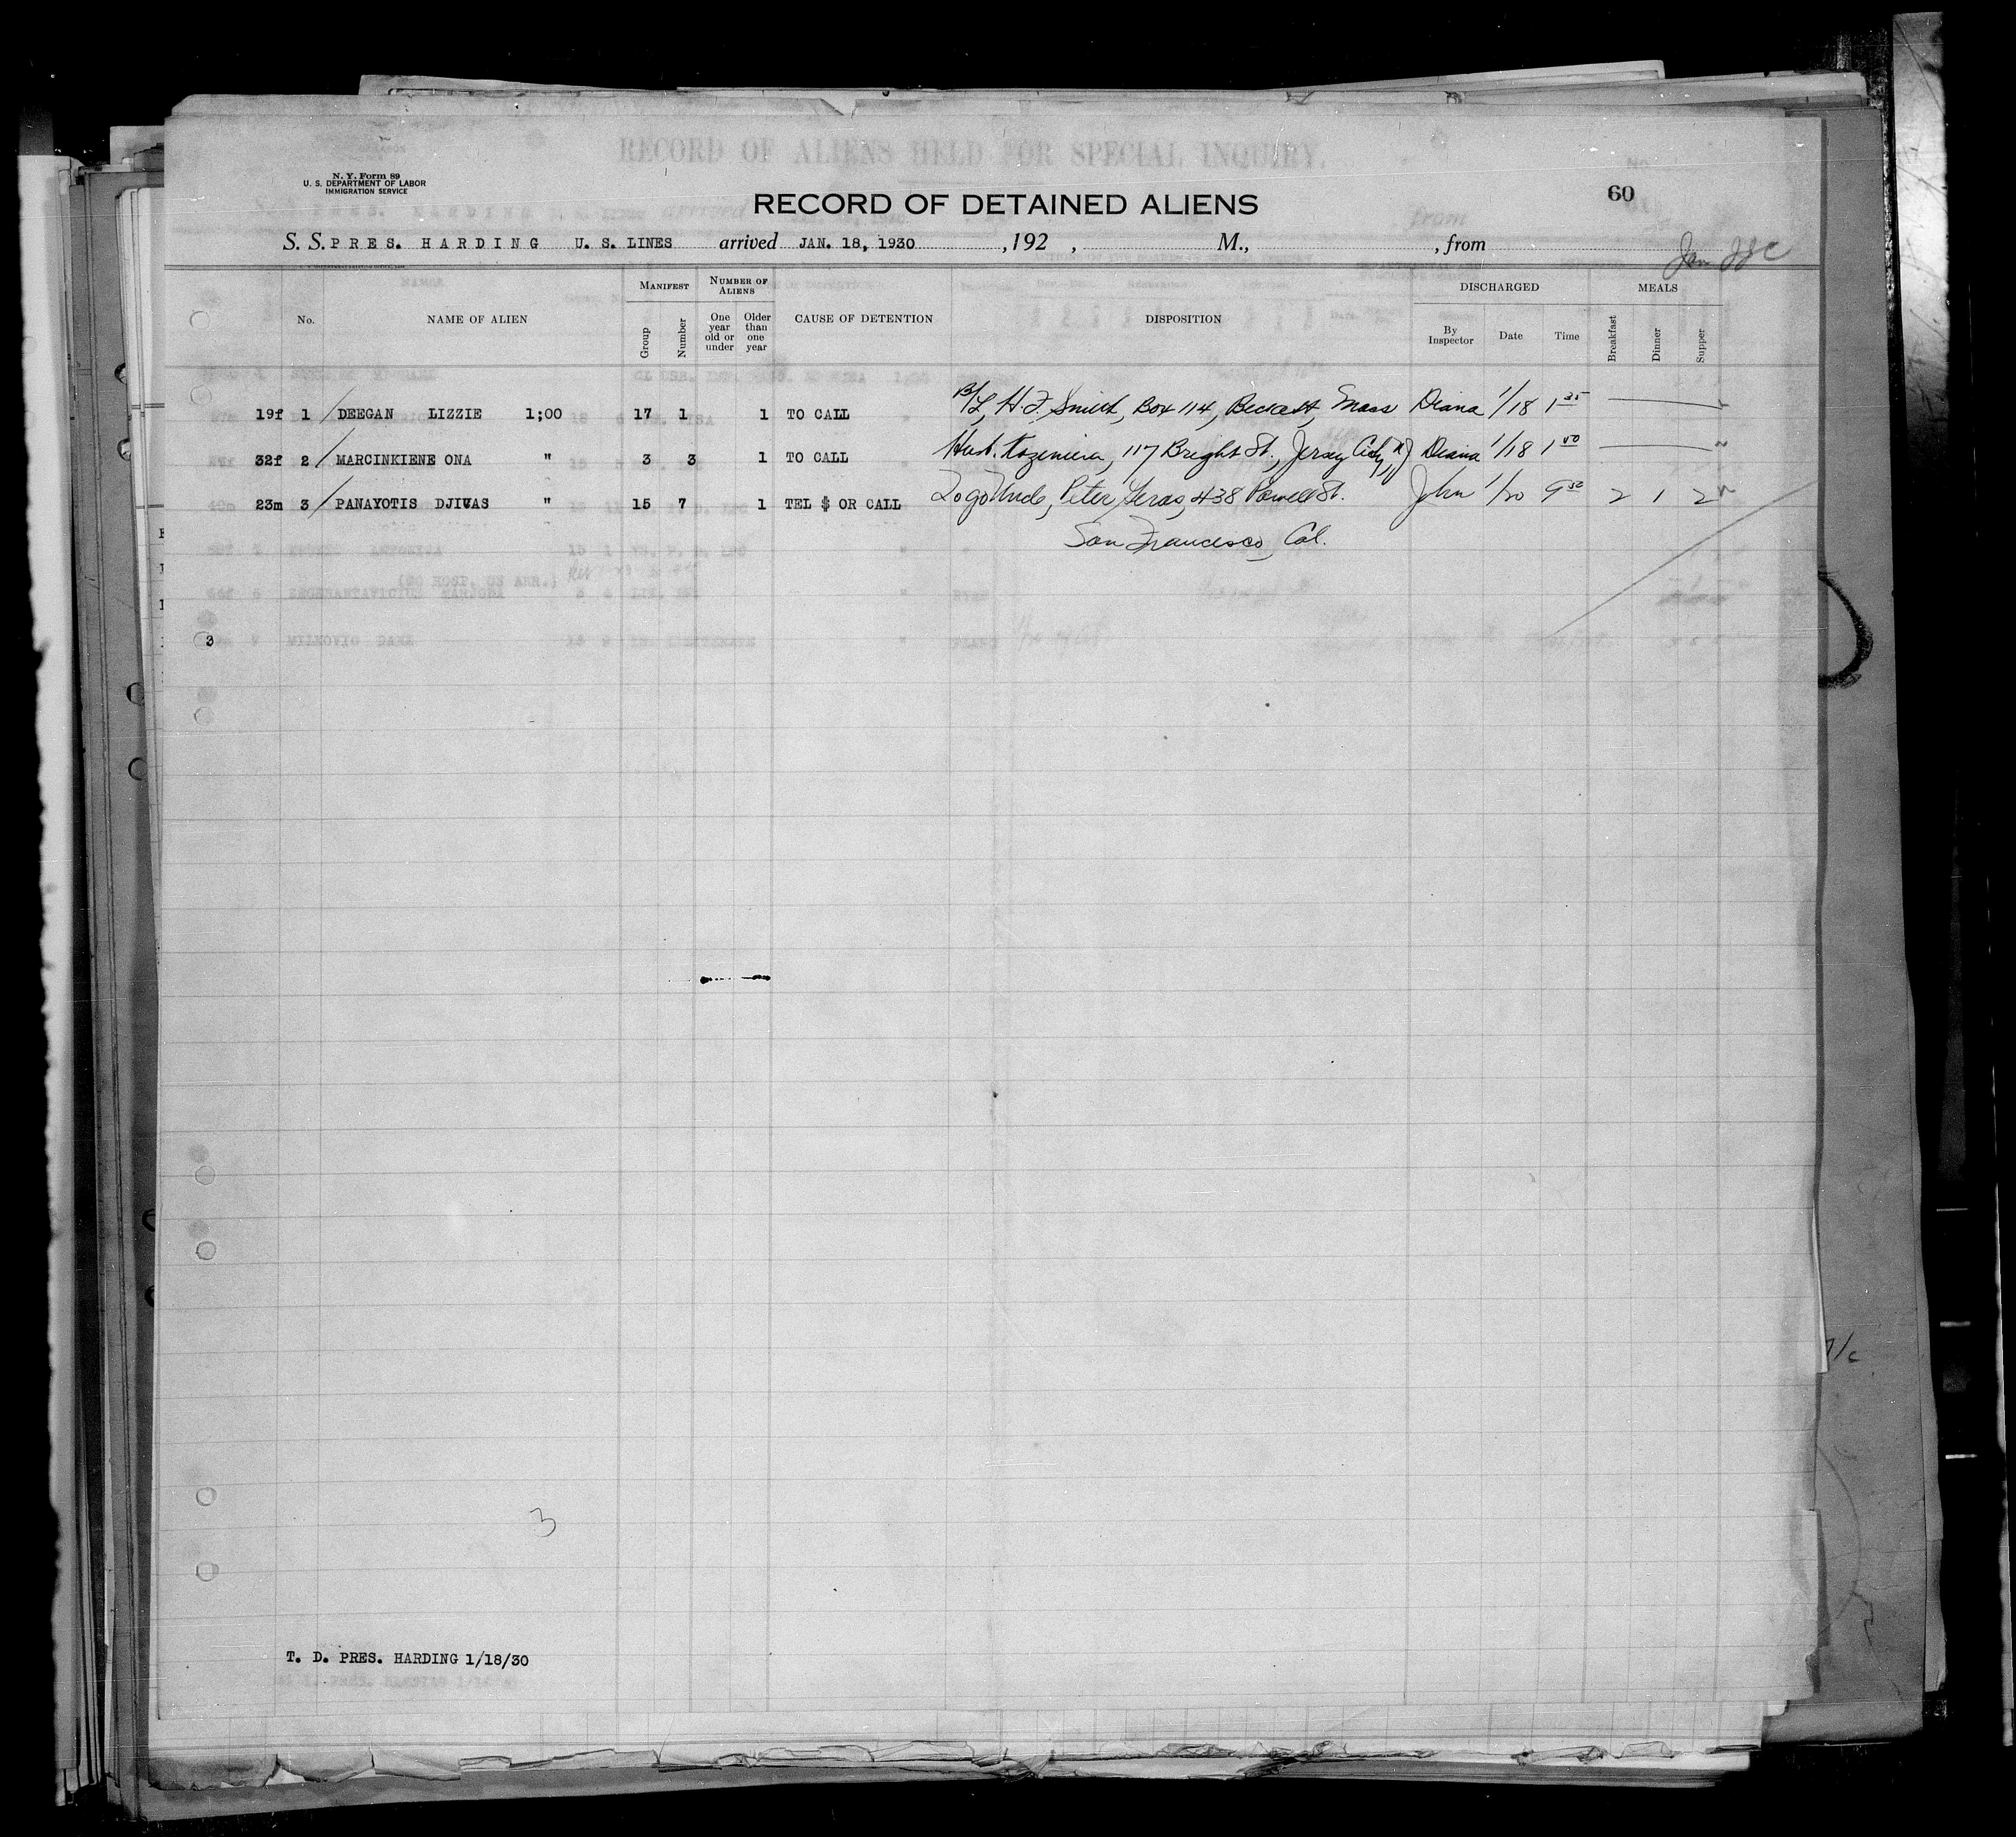 RECORD OF ALIENS HELD FOR SPECIAL INQUIRY.
N. Y. Form 89
U. S. DEPARTMENT OF LABOR
IMMIGRATION SERVICE
60
RECORD OF DETAINED ALIENS
S. S. PRES. HARDING U. S. LINES arrived JAN. 18, 1930 , 192 , M., , from
No. NAME OF ALIEN MANIFEST Group Number NUMBER OF ALIENS One year old or under Older than one year CAUSE OF DETENTION DISPOSITION DISCHARGED By Inspector Date Time MEALS Breakfast Dinner Supper
19f 1 / DEEGAN LIZZIE 1;00 17 1 1 TO CALL B/L, H. F. Smith, Box 114, Mass Diana 1/18 1 35
32f 2 / MARCINKIENE ONA " 3 3 1 TO CALL Husb. 117 Bright St., Jersey City, NJ Diana 1/18 1 50
23m 3 / PANAYOTIS DJIVAS " 15 7 1 TEL $ OR CALL To go Uncle, Peter 438 Powell St. John 1/20 9 50 2 1 2
San Francisco, Cal.
3
3
T. D. PRES. HARDING 1/18/30